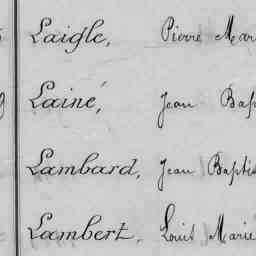 Laigle, Pierre Mar
Lainé, Jean Bap
Lambard, Jean Baptis
Lambert, Louis Marie